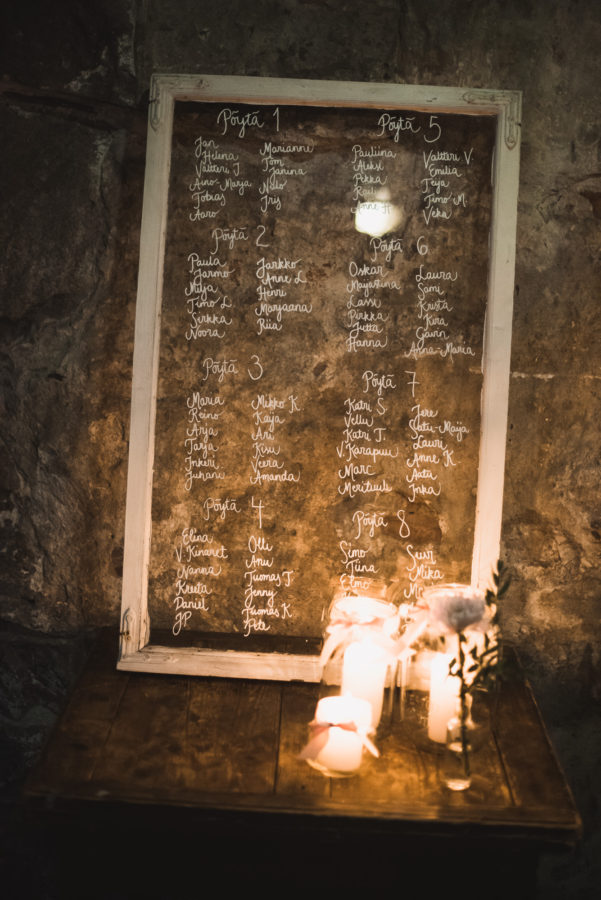 Pöytä 1
Jan
Helena
Valtteri J.
Aino-Marja
Tobias
Aaro
Marianne
Tom
Janina
Niilo
Iris
Pöytä 2
Paula
Jarmo
Milja
Timo L.
Sirkka
Noora
Jarkko
Anne L
Henri
Marjaana
Riia
Pöytä 3
Maria
Reino
Arja
Tarja
Inkeri
Juhani
Mikko K
Kaija
Ari
Kisu
Veera
Amanda
Pöytä 4
Elina
V. Kinaret
Nanna
Kreeta
Daniel
JP
Olli
Anu
Tuomas J
Jenny
Tuomas K.
Pete
Pöytä 5
Pauliina
Aleksi
Pekka
Anne H
Valtteri V.
Emilia
Teija
Timo M.
Veka
Pöytä 6
Oskar
Mayastina
Lassi
Pirkka
Jutta
Hanna
Laura
Sami
Krista
Kira
Gavin
Anna-Maria
Pöytä 7
Katri S.
Vellu
Katri T.
V. Karapuu
Marc
Merituuli
Jere
Satu-Maija
Lauri
Anne K
Aata
Inka
Pöytä 8
Simo
Tiina
Elmo
Suvi
Mika